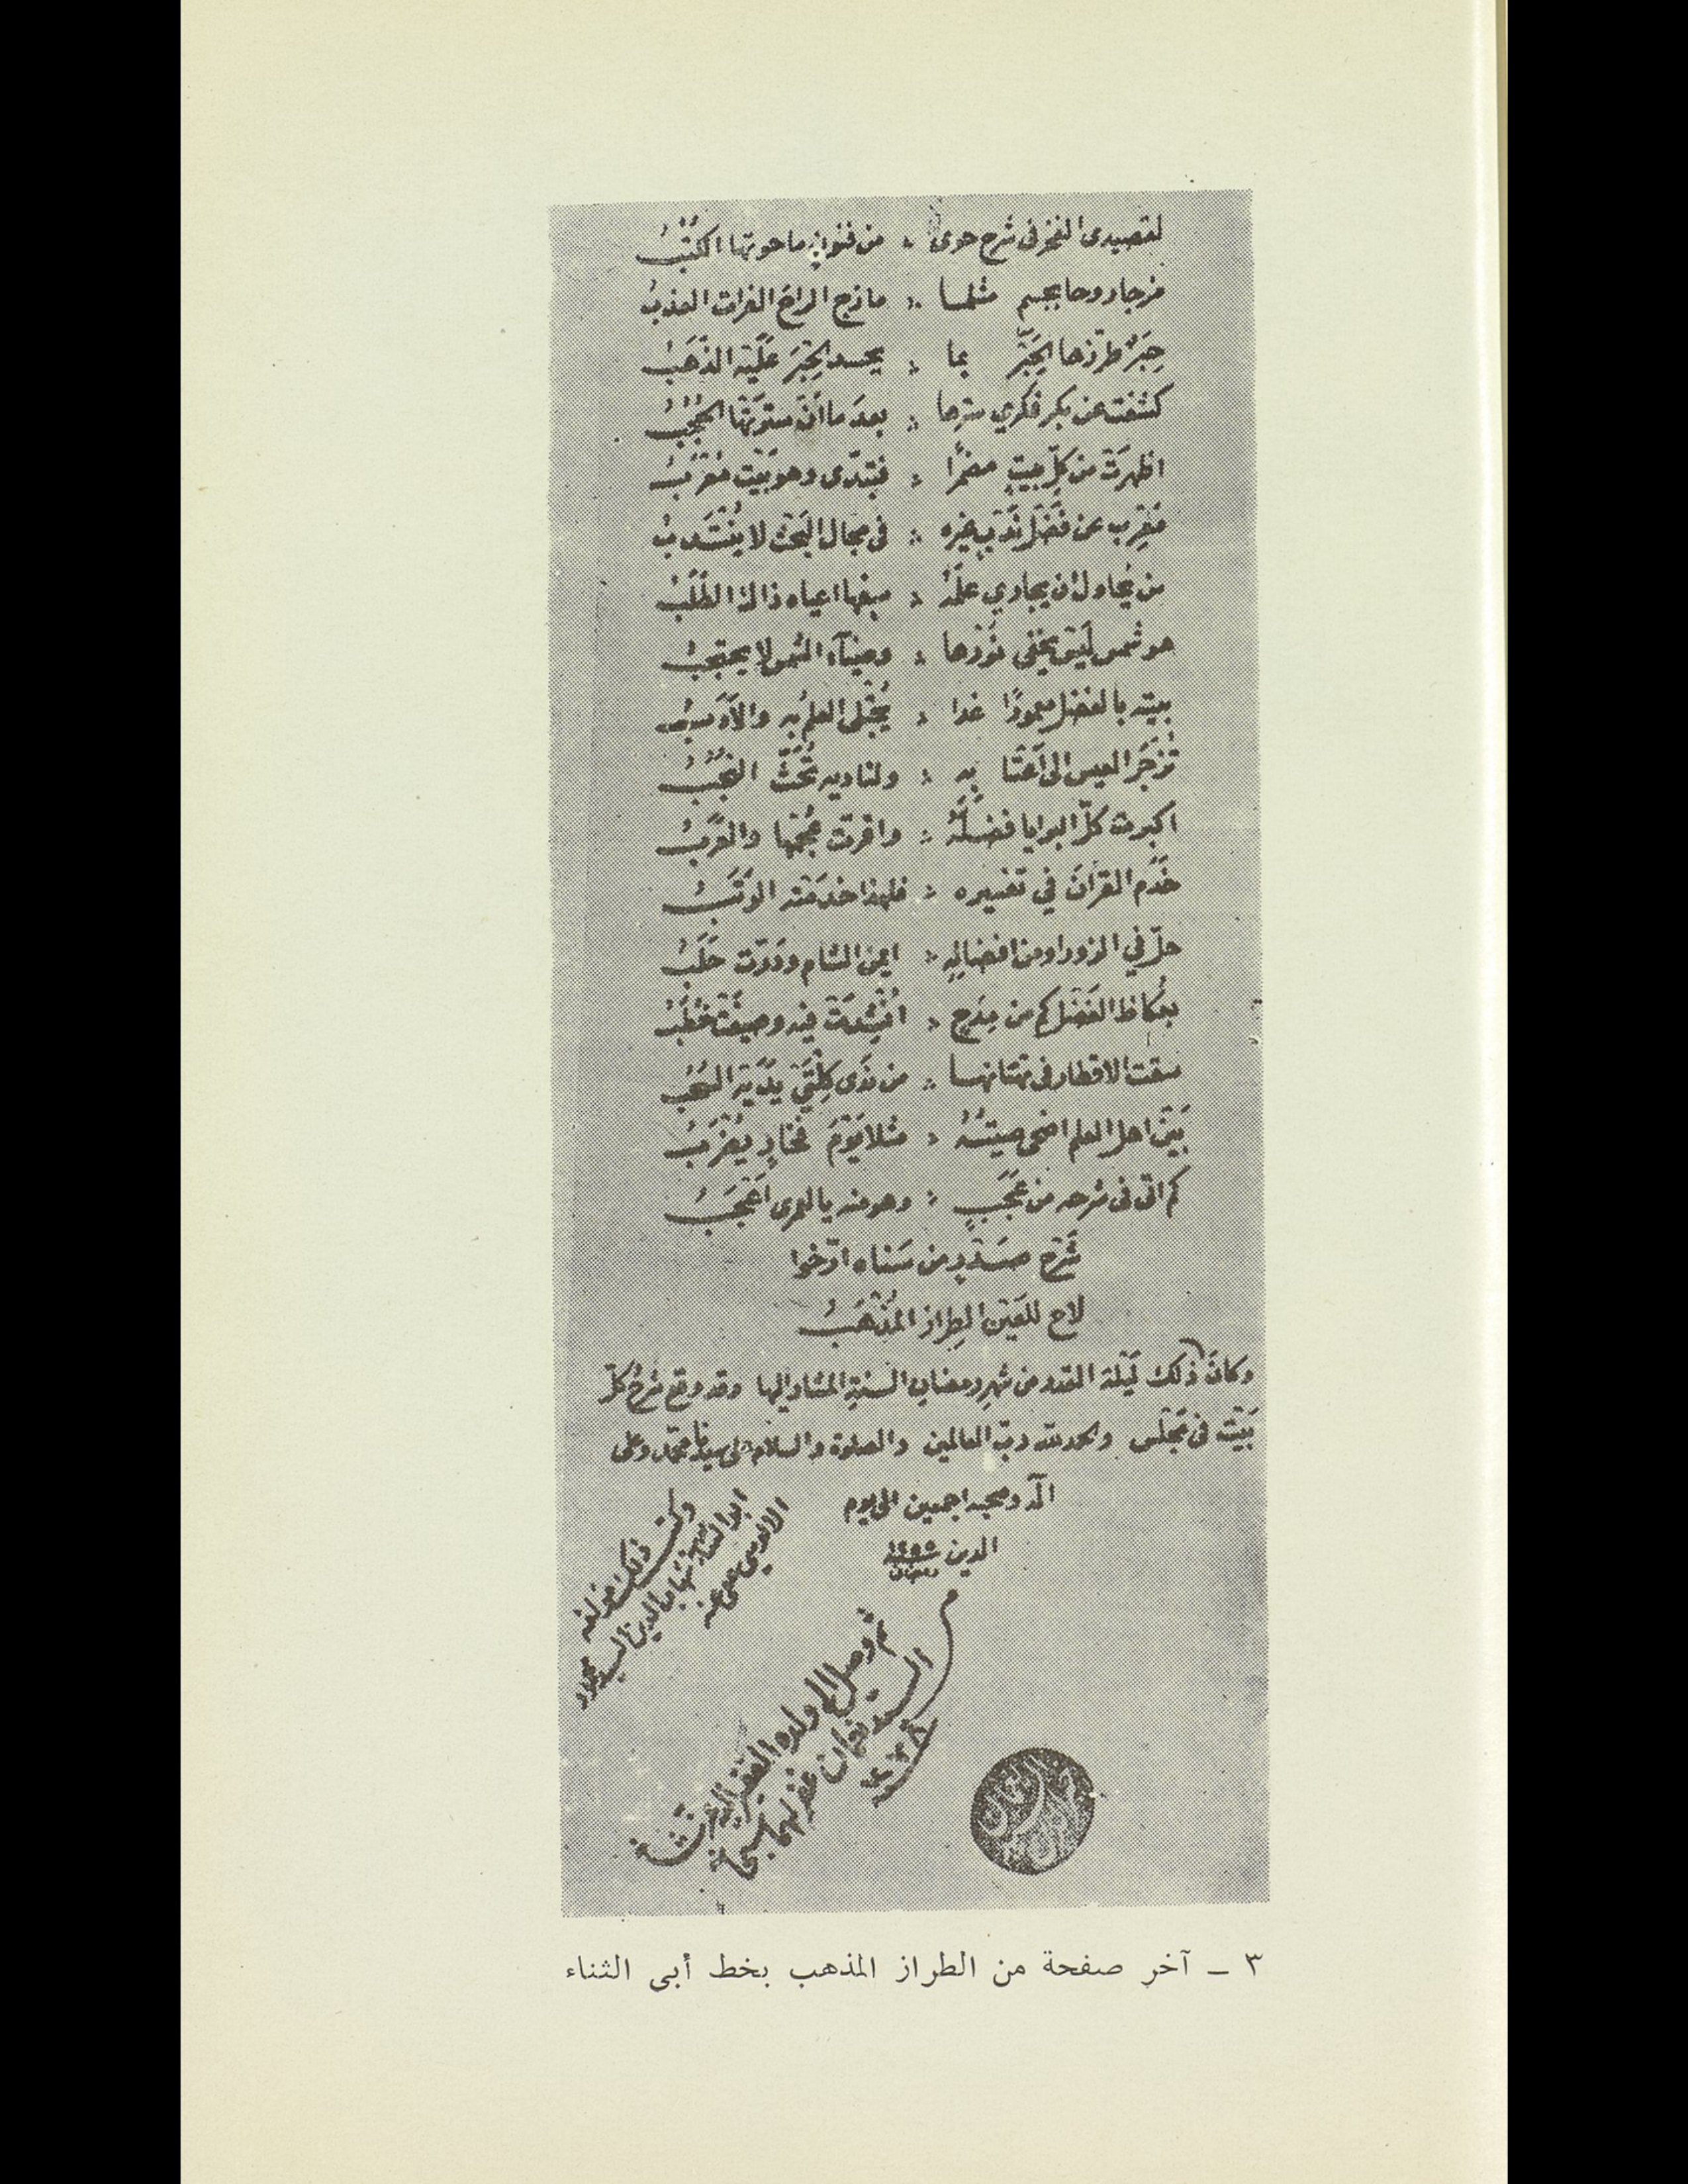 لقصيدى الفخر فى شرح حوى ؞ من فنونٍ ما حوتها الكُتُبُ
مزجا روحا بجسم مثلما ؞ مازج الراحَ الفرات العذبُ
حِبَرٌ طرّزها الحَبْرُ بما ؞ يحسد الحِبْرَ عَلَيْه الذَهَبُ
كشفت عن بكر فكري سترها ؞ بعدَ ما أن سترتها الحُجُبُ
اظهرَتْ من كلّ بيتٍ مضمرًا ؞ فتبدّى وهو بَيْت مُعْرَبُ
مُعْرِب عن فَضْل نَدْبٍ غيره ؞ فى مجال البَحْث لا يُنْتَدبُ
من يُحاول ان يجاري علمَهُ ؞ سفها اعياه ذاك الطَلَبُ
هو شمس لَيْسَ يخفى نُوْرُها ؞ وضيآء الشمس لا يحتجبُ
بيته بالفضل معمورًا غدا ؞ يُجْتَلى العلمُ به والأَدبُ
تُزْجَرُ العيس الى أعتابه ؞ ولناديه تُحَثُّ النُجُبُ
اكبرت كلّ البرايا فضلَهُ ؞ واقرت عُجْمُها والعَرَبُ
خَدَم القرانَ في تفسيره ؞ فلهذا خدمَتْه الرُتَبُ
حلّ في الزورا ومن افضالِهِ ؞ ايمن الشام ودَرّت حَلَبُ
بعُكاظ الفَضْل كم من مِدَحٍ ؞ اُنْشِدَتْ فيه وصيغَتْ خُطَبُ
سقت الاقطار فى تهتانها ؞ من نَدَى كِلْتَيْ يَدَيْه السُحُبُ
بَيْنَ اهل العلم اضحى صيتُهُ ؞ مثلا يَوْمَ فخارٍ يُضْرَبُ
كم اتى فى شرحه من عَجَبٍ ؞ وهو منه يا لعمرى اَعْجَبُ
شَرْحُ صَدْرٍ من سَناه ارّخوا
لاح للعَيْن الطِراز المُذْهَبُ
وكانَ ذلك لَيْلة القدر من شهر رمضان السنةِ المشار اليها وقد وقع شرحُ كلّ
بَيْت فى مَجْلس والحمد لله ربّ العالمين والصلوة والسلام على سيدنا محمّد وعلى
آله وصحبه اجمعين الى يوم
الدين سنة ١٢٥٥
رمضان
وكتب ذلك مؤلفه
ابو الثناء شهاب الدين السيد محمود
الالوسي عفى عنه
ثم وصل الى ولده الفقير اليه عز شأنه
السيد نعمان غفر لهما سبحانه
٣ ــ آخر صفحة من الطراز المذهب بخط أبى الثناء